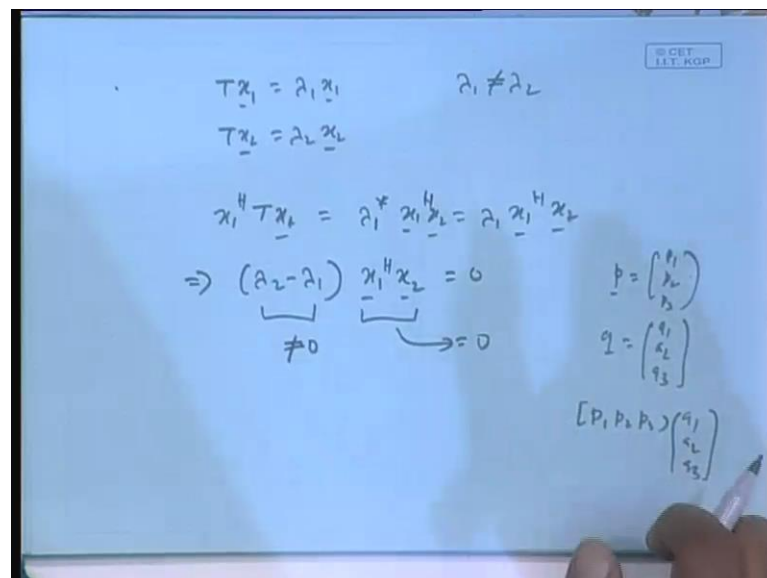 © CET
I.I.T. KGP
Tx₁ = λ₁x₁ λ₁ ≠ λ₂
Tx₂ = λ₂x₂
x₁ᴴTx₂ = λ₁* x₁ᴴx₂ = λ₁ x₁ᴴ x₂
⇒ (λ₂-λ₁) x₁ᴴx₂ = 0
≠0 → = 0
p = (p₁ p₂ p₃)
q = (q₁ q₂ q₃)
[p₁ p₂ p₃) (q₁ q₂ q₃)